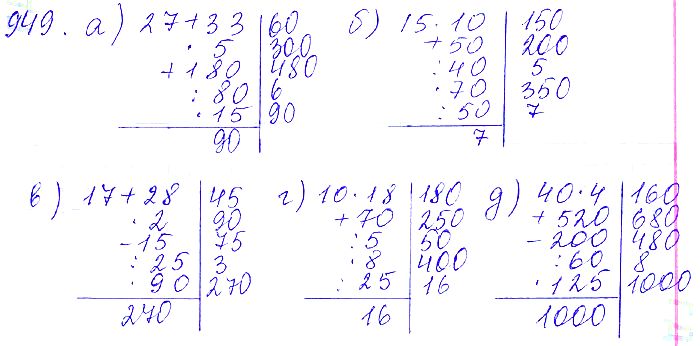 949. а) 27+33 | 60
· 5 | 300
+180 | 480
: 80 | 6
· 15 | 90
90
б) 15 · 10 | 150
+50 | 200
: 40 | 5
· 70 | 350
: 50 | 7
7
в) 17+28 | 45
· 2 | 90
-15 | 75
: 25 | 3
· 90 | 270
270
г) 10 · 18 | 180
+70 | 250
: 5 | 50
· 8 | 400
: 25 | 16
16
д) 40 · 4 | 160
+520 | 680
-200 | 480
: 60 | 8
· 125 | 1000
1000